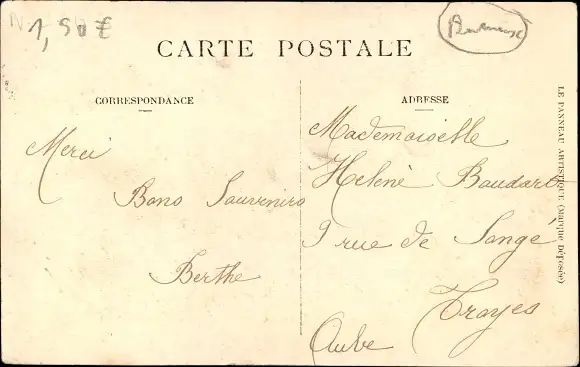 1,50 €
CARTE POSTALE
CORRESPONDANCE
ADRESSE
Merci
Bons Souvenirs
Berthe
Mademoiselle
Helène Baudard
9 rue de Sangé
Troyes
Aube
LE PANNEAU ARTISTIQUE (Marque Déposée)